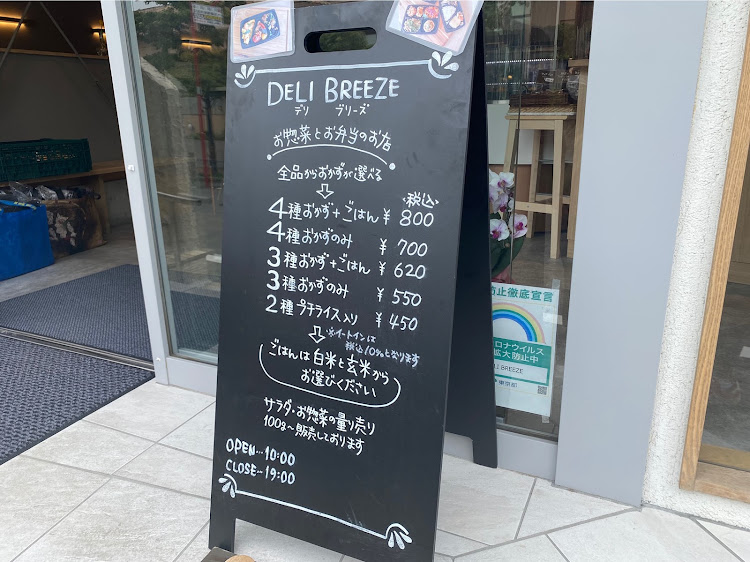 DELI BREEZE
デリ ブリーズ
お惣菜とお弁当のお店
全品からおかずが選べる
税込
4種おかず+ごはん ¥ 800
4種おかずのみ ¥ 700
3種おかず+ごはん ¥ 620
3種おかずのみ ¥ 550
2種 プチライス入り ¥ 450
※イートインは
税込10%となります
ごはんは白米と玄米から
お選びください
サラダ・お惣菜の量り売り
100g〜販売しております
OPEN…10:00
CLOSE…19:00
防止徹底宣言
コロナウイルス
拡大防止中
DELI BREEZE
東京都